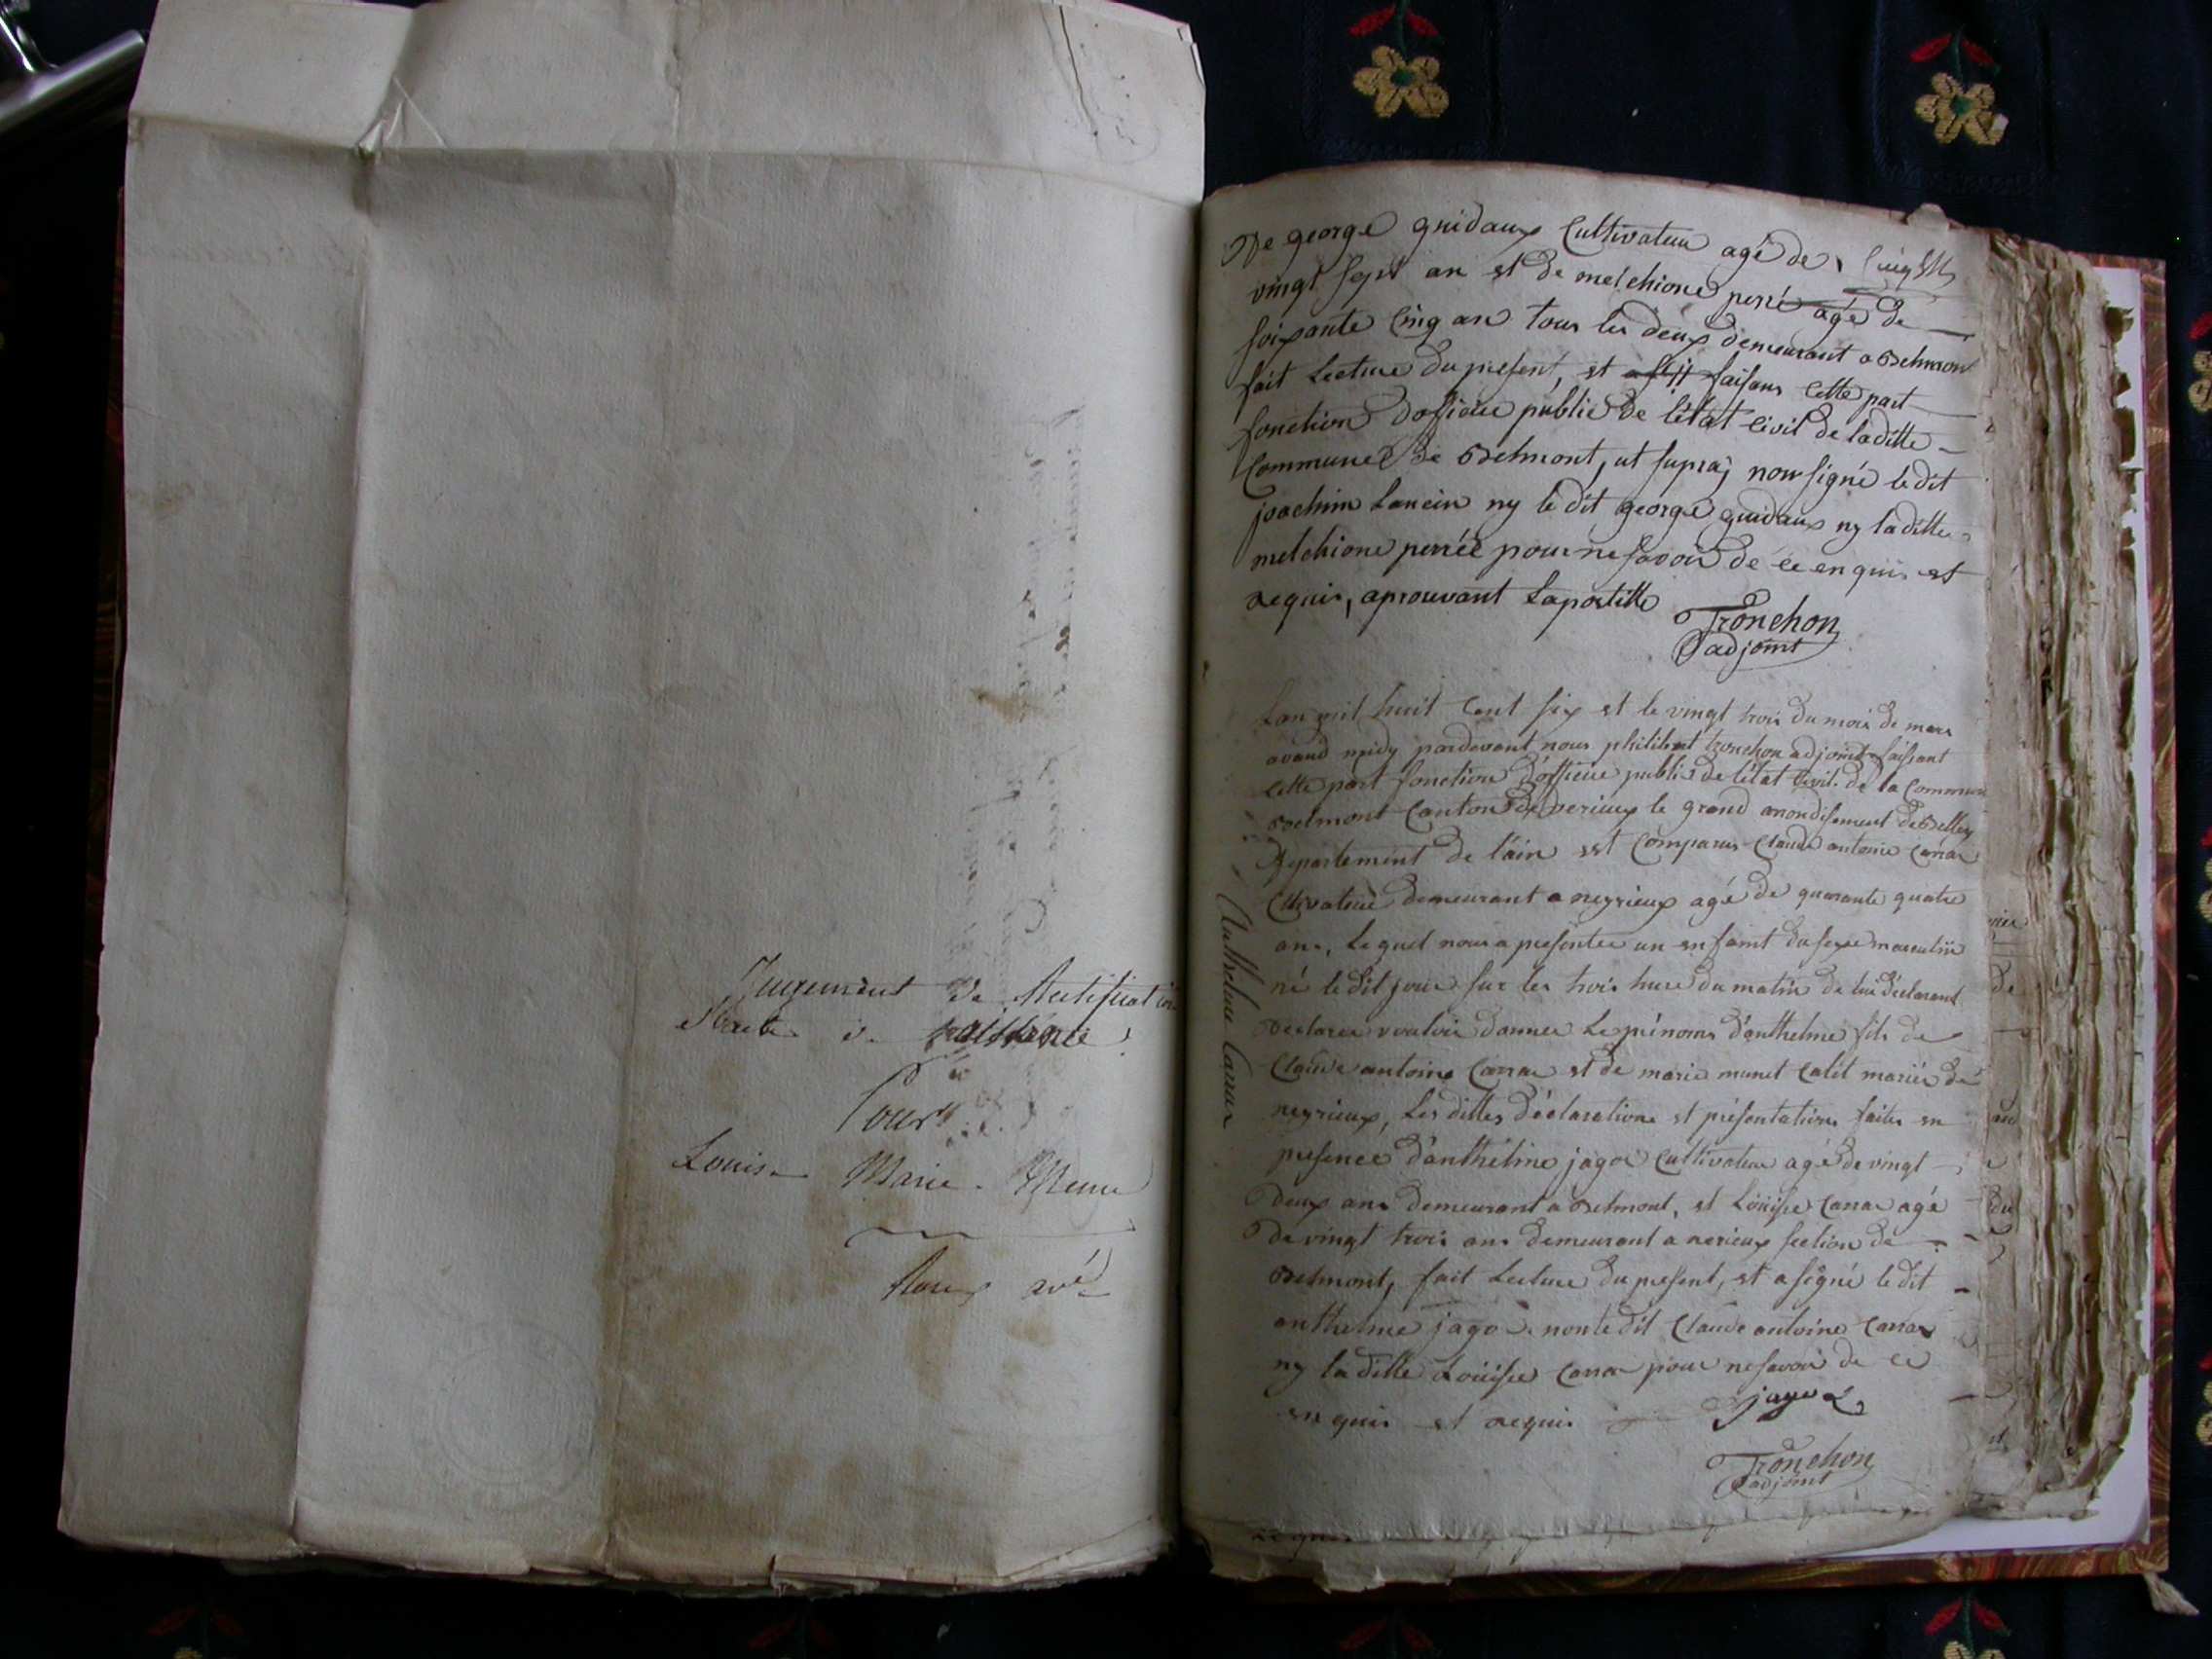 Jugement de Rectification
d'acte de naissance
Pour
Louise Marie
De george guidaux Cultivateur agé de
vingt sept an et de melchione perré agé de
soixante cinq an tous les deux demeurant a Belmont
fait Lecture du present, et faisans cette part
fonction dofficier public de létat civil de laditte
Commune de Belmont, ut supra, non signé le dit
joachim Lancin ny le dit george guidaux ny laditte
melchione perrée pour ne savoir de ce enquis et
requis, aprouvant Lapostille
Tronchon
adjoint
Lan mil huit cent six et le vingt trois du mois de mars
avand midy pardevant nous philibert tronchon adjoint faisant
cette part fonction d'officier public de létat civil de la Commune
Belmont Canton de virieux le grand arrondisement de Belley
Departement de l'ain est Comparus Claude antoine Carrar
Cultivateur demeurant a neyrieux agé de quarante quatre
ans, Lequel nous a presentée un enfant du sexe masculin
né le dit jour sur les trois hure du matin de lui déclarant
declaree vouloir donner Le prénoms d'anthelme fils de
Claude antoine Carrar et de marie munet Calit mariée de
neyrieux, Les dittes déclarations et présentations faites en
presence d'anthelme jagot Cultivateur agé de vingt
deux ans demeurant a Belmont, et Loüise Carrar agé
de vingt trois ans demeurant a nerieux section de
Belmont, fait Lecture du present, et a signé le dit
anthelme jagot non le dit Claude antoine Carrar
ny laditte Loüise Carrar pour ne savoir de ce
enquis et requis
jagot
Tronchon
adjoint
Anthelme Carrar